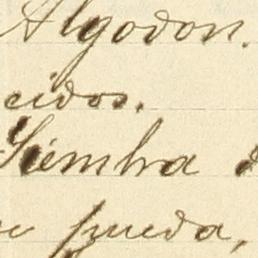 Algodon.
cidos.
Siembra
pueda,